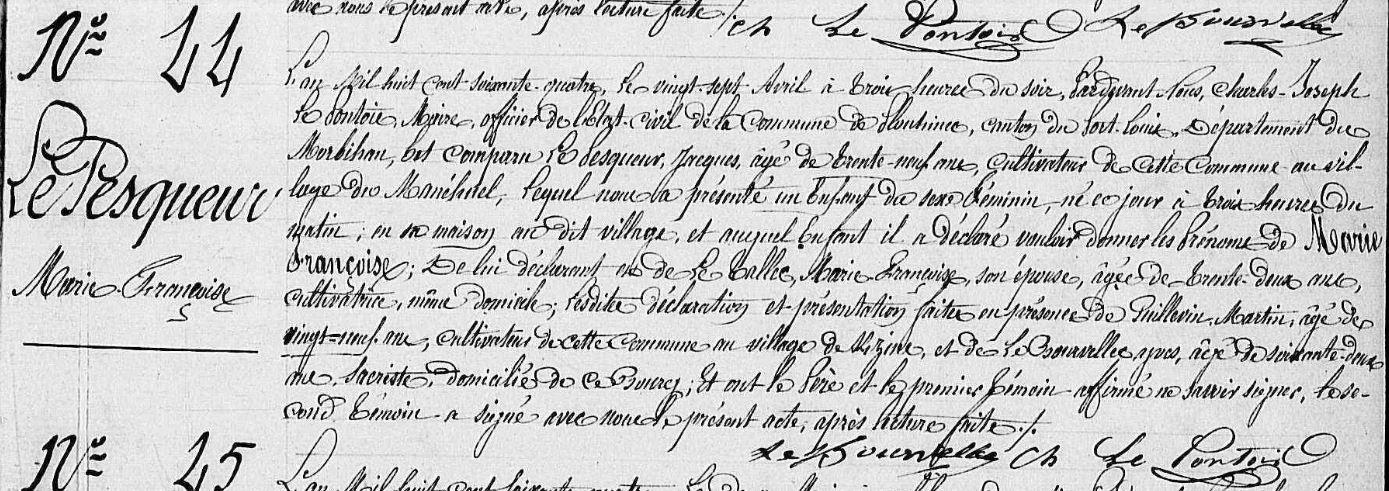 avec nous le présent acte, après lecture faite ./.
Ch Le Pontois Le Bourvellec
Nos 44
Le Pesqueur
Marie Françoise
L'an Mil huit cent soixante-quatre, le vingt-sept Avril à trois heures du soir, Pardevant Nous, Charles-Joseph
Le Pontois, Maire, officier de l'Etat-civil de la Commune de Plouhinec, canton du Port-Louis, Département du
Morbihan, est comparu Le Pesqueur, Jacques, âgé de trente-neuf ans, cultivateur de cette Commune au vil-
lage du Manéhuel, lequel nous a présenté un Enfant du sexe féminin, né ce jour à trois heures du
matin, en sa maison au dit village, et auquel Enfant il a déclaré vouloir donner les Prénoms de Marie
Françoise; De lui déclarant et de Le Vallec, Marie Françoise, son épouse, âgée de trente-deux ans,
cultivatrice, même domicile; lesdites déclaration et présentation faites en présence de Guillevin, Martin, âgé de
vingt-neuf ans, cultivateur de cette Commune au village de et de Le Bourvellec, yves, âgé de soixante-deux
ans, Sacriste, domicilié de ce Bourg; Et ont le Père et le premier témoin affirmé ne savoir signer, le se-
cond témoin a signé avec nous le présent acte, après lecture faite ./.
Le Bourvellec Ch Le Pontois
Nos 45
L'an Mil huit cent soixante quatre